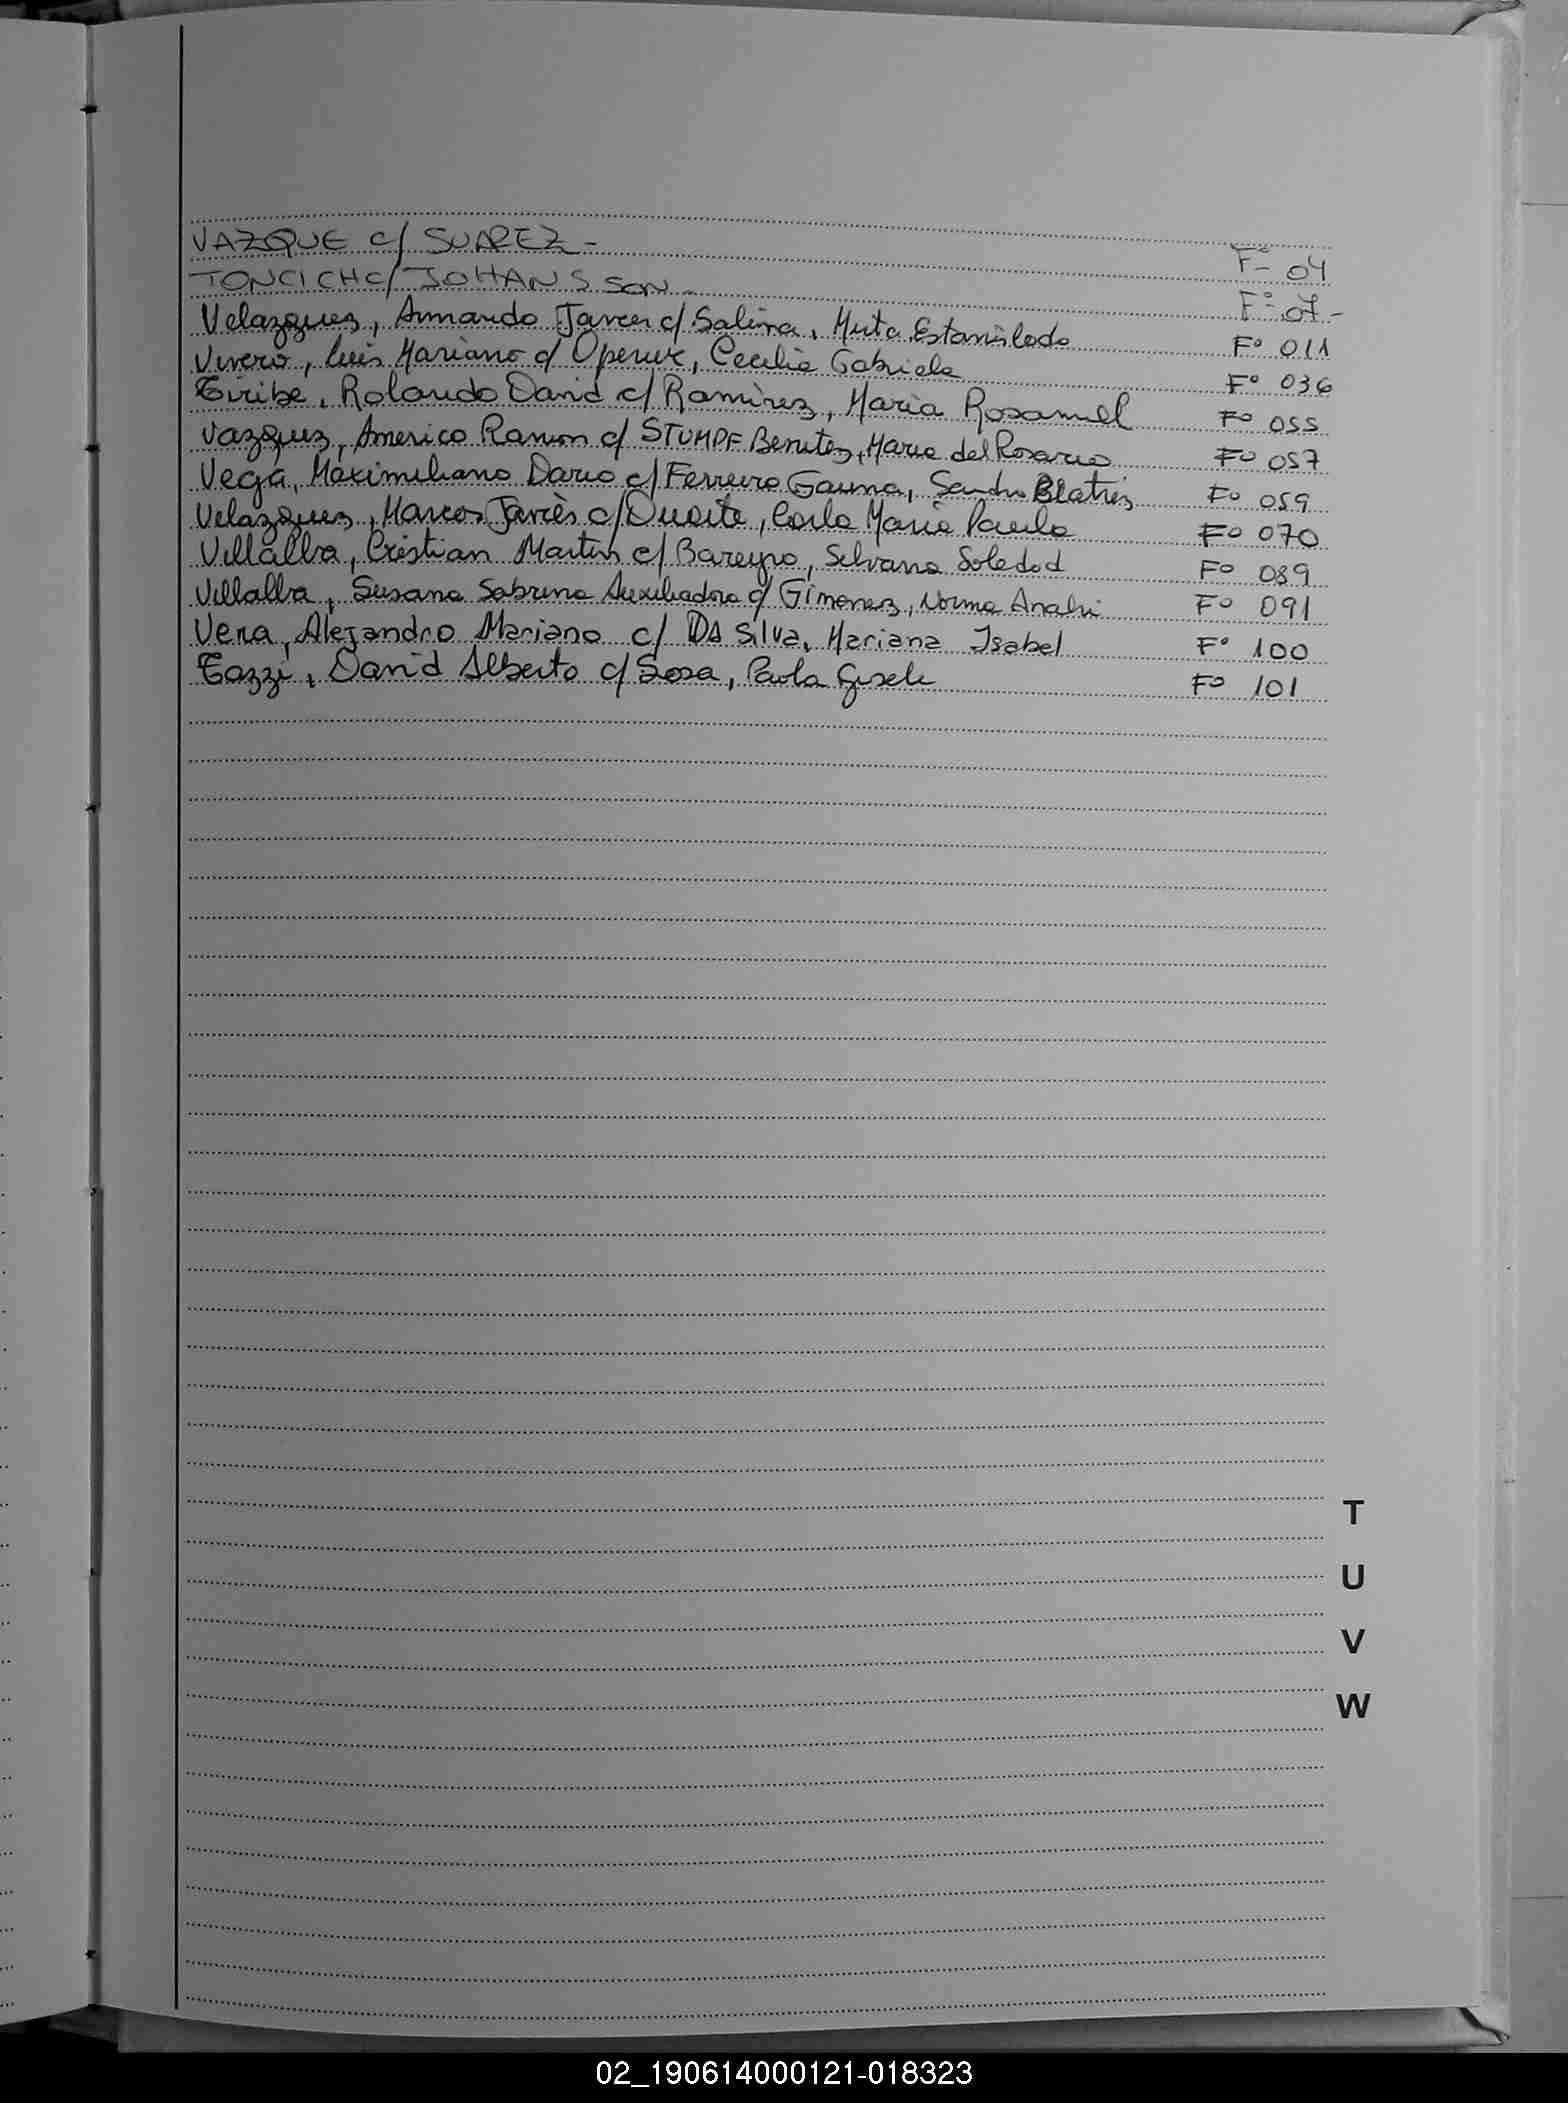 VAZQUE c/ SUAREZ - Fº 04
TONCICH c/ JOHANSSON - Fº 07 -
Velazquez, Armando Javier c/ Salina, Mirta Estanislada Fº 011
Vivero, Luis Mariano c/ Cecilia Gabriela Fº 036
Tiribe, Rolando David c/ Ramirez, Maria Rosamel Fº 055
Vazquez, Americo Ramon c/ STUMPF Benitez, Maria del Rosario Fº 057
Vega, Maximiliano Dario c/ Ferreiro Gauna, Sandra Beatriz Fº 059
Velazquez, Marcos Javier c/ Duarte, Carla Maria Paula Fº 070
Villalba, Cristian Martin c/ Bareyro, Silvana Soledad Fº 089
Villalba, Susana Sabrina Auxiliadora c/ Gimenez, Norma Anahi Fº 091
Vera, Alejandro Mariano c/ DA Silva, Mariana Isabel Fº 100
Tazzi, David Alberto c/ Sosa, Paola Gisele Fº 101
T
U
V
W
02_190614000121-018323